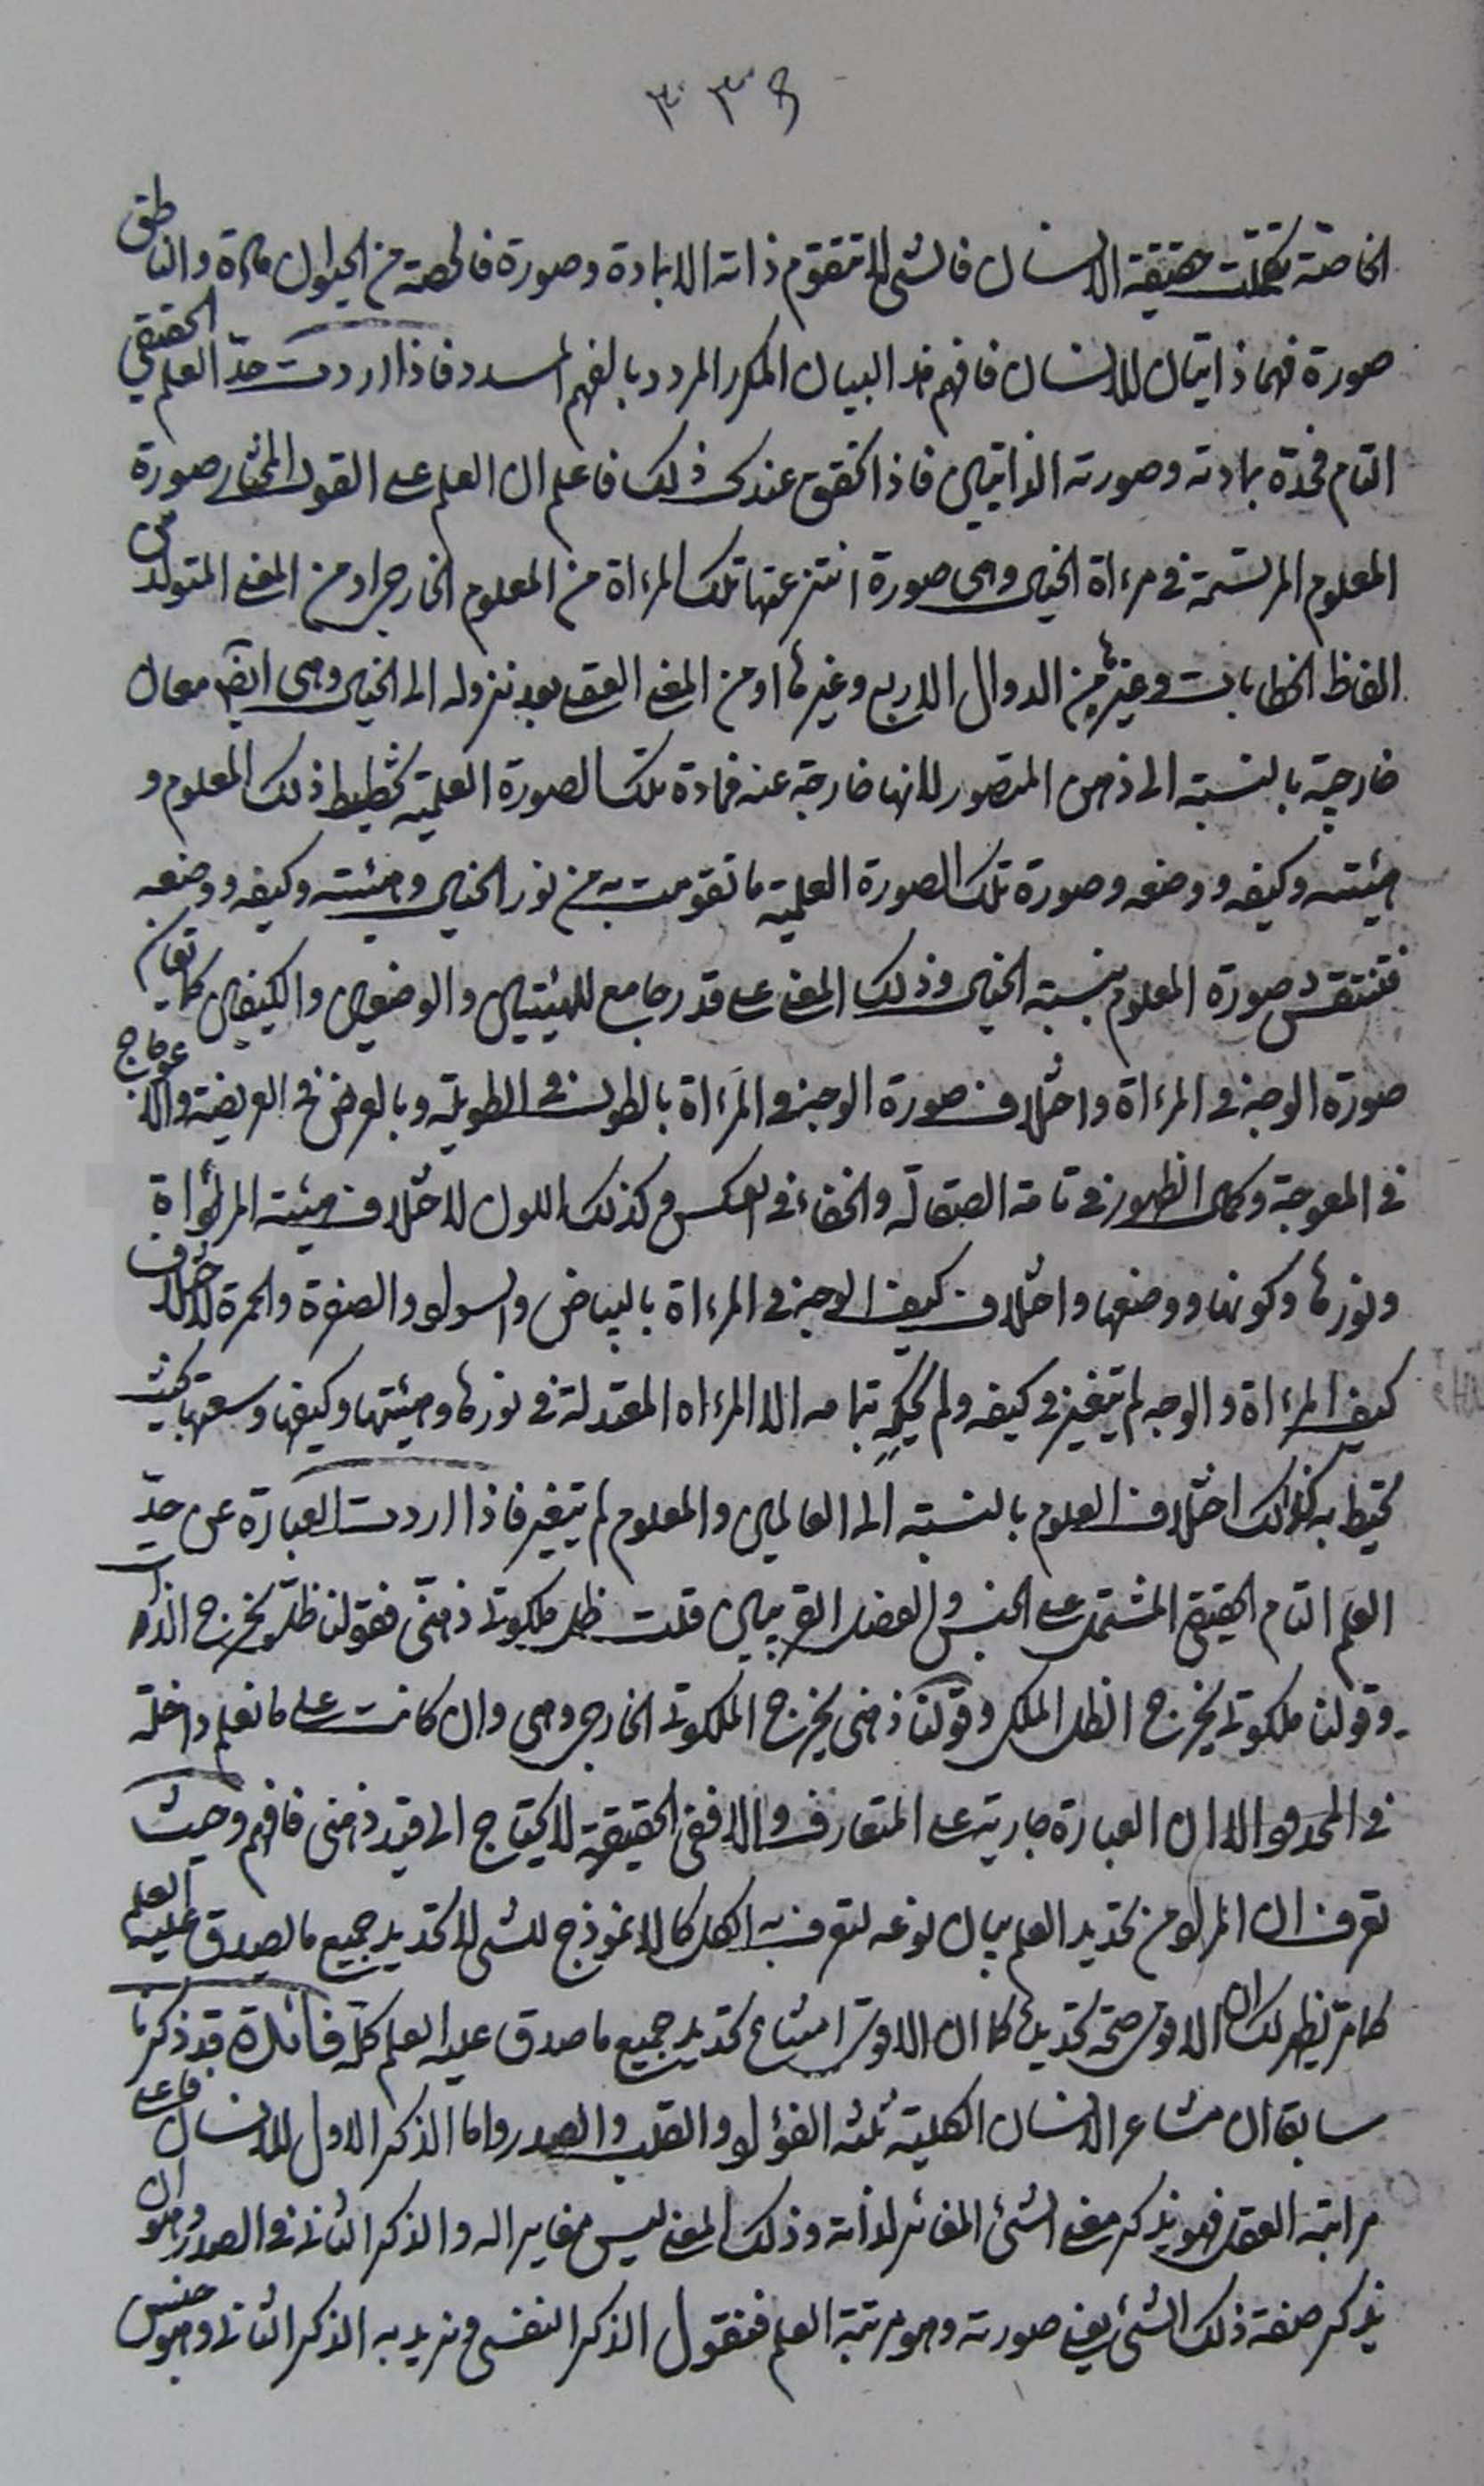 ٣٣٩
الخاصة تمت حقيقة الانسان فالشئ لا تتقوم ذاته الا بمادة وصورة فالحصة من الحيوان مادة والناطق
صورة فهما ذاتيان للانسان فافهم هذا البيان المكرر المردد بالفهم المسدد فاذا اردت حدّ العلم الحقيقي
التام فحدّه بمادته وصورته الذاتيان فاذا تحقق عندك ذلك فاعلم ان العلم على القول المختار صورة
المعلوم المرتسمة في مرءاة الخيال وهي صورة انتزعتها تلك المرءاة من المعلوم الخارجي او من المعنى المتولد من
الفاظ الخطابات وغيرها من الدوال الاربع وغيرها او من المعنى العقلي بعد نزوله الى الخيال وهي ايض معان
خارجية بالنسبة الى ذهن المتصور لانها خارجة عنه فمادة تلك الصورة العلمية تخطيط ذلك المعلوم و
هيئته وكيفه ووضعه وصورة تلك الصورة العلمية ما تقومت به من نور الخيال وهيئته وكيفه ووضعه
فتنتقش صورة المعلوم بنسبة الخيال وذلك المعنى على قدر جامع للهيئتين والوضعين والكيفين كما تقابل
صورة الوجه في المرءاة واختلاف صورة الوجه في المرءاة بالطول في الطويلة وبالعرض في العريضة والاعوجاج
في المعوجة وكمال الظهور في تامة الصقالة والخفاء في العكس وكذلك اللون لاختلاف هيئة المرءاة
ونورها وكونها ووضعها واختلاف كيف الوجه في المرءاة بالبياض والسواد والصفرة والحمرة لاختلاف
كيف المرءاة والوجه لم يتغير في كيفه ولم يحكه بتمامه الا المرءاه المعتدلة في نورها وهيئتها وكيفها وسعتها بحيث
تحيط به كذلك اختلاف العلوم بالنسبة الى العالمين والمعلوم لم يتغير فاذا اردت العبارة عن حدّ
العلم التام الحقيقي المشتمل على الجنس والفصل القريبين قلت ظل ملكوتي ذهني فقولنا ظل يخرج الذات
وقولنا ملكوتي يخرج الظل الملكي وقولنا ذهني يخرج الملكوتي الخارجي وهي وان كانت على ما نعلم داخلة
في المحدود الا ان العبارة جارية على المتعارف والا ففي الحقيقة لا يحتاج الى قيد ذهني فافهم وحيث
تعرف ان المراد من تحديد العلم بيان نوعه لتعرف به الكل كالانموذج للشئ لا تحديد جميع ما يصدق عليه العلم
كما مر يظهر لك ان الاقوى صحة تحديده كما ان الاقوى امتناع تحديد جميع ما صدق عليه العلم كلّه فائدة قد ذكرنا
سابقا ان مشاعر الانسان الكلية ثلثة الفؤاد والقلب والصدر واما الذكر الاول للانسان فاعلى
مراتبه العقل فهو يذكر معنى الشئ المغاير لذاته وذلك المعنى ليس مغايرا له والذكر الثاني في الصدر وهو ان
يذكر صفة ذلك الشئ يعني صورته وهو مرتبة العلم فنقول الذكر النفسي ونريد به الذكر الثاني وهو جنس